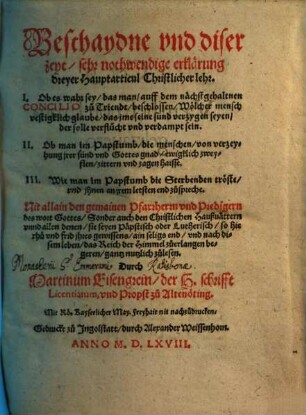 Beschaydne vnd diser
zeyt / sehr nothwendige erklärung
dreyer Hauptarticul Christlicher lehr.
I. Ob es wahr sey / das man / auff dem nächstgehaltnen
CONCILIO zů Triendt / beschlossen / Wölcher mensch
vestigklich glaube / das jmo seine sünd verzygen seyen /
der solle verflůcht vnd verdampt sein.
II. Ob man im Papstumb / die menschen / von verzey-
hung jrer sünd vnd Gottes gnad / ewigklich zweyf-
flen / zittern vnd zagen haisse.
III. Wie man im Papstumb die Sterbenden tröste /
vnd jhnen an jrem letsten end zůspreche.
Nit allain den gemainen Pfarrherrn vnd Predigern
des wort Gottes / Sonder auch den Christlichen Haußuättern
vnd allen denen / sie seyen Päpstisch oder Lutherisch / so hie
rhů vnd frid jhres gewissens / ain seligs end / vnd nach di-
sem leben / das Reich der Himmel zůerlangen be-
geren / gantz nutzlich zůlesen.
Monasterii S. Emmerami Durch Ratisbonae
Martinum Eisengrein / der H. schrifft
Licentiatum, vnd Propst zů Altenöting.
Mit Rö. Kayserlicher May. Freyhait nit nachzůdrucken.
Gedruckt zů Ingolstatt / durch Alexander Weissenhorn.
ANNO M. D. LXVIII.